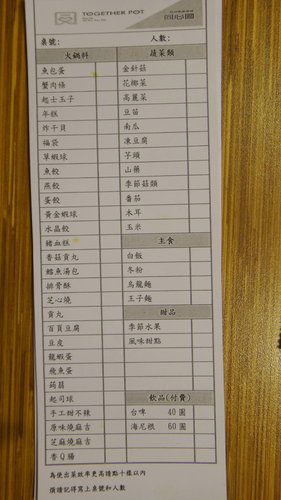 TOGETHER POT
桌號: 人數:
火鍋料 蔬菜類
魚包蛋 金針菇
蟹肉條 花椰菜
起士玉子 高麗菜
年糕 豆苗
炸干貝 南瓜
福袋 凍豆腐
草蝦球 芋頭
魚餃 山藥
燕餃 季節菇類
蛋餃 番茄
黃金蝦球 木耳
水晶餃 玉米
豬血糕 主食
香菇貢丸 白飯
鱈魚湯包 冬粉
排骨酥 烏龍麵
芝心燒 王子麵
貢丸 甜品
百頁豆腐 季節水果
豆皮 風味甜點
龍蝦蛋
飛魚蛋
蒟蒻
起司球 飲品(付費)
手工甜不辣 台啤 40 圓
原味燒麻吉 海尼根 60 圓
芝麻燒麻吉
香Q腸
為使出菜效率更高請點十樣以內
煩請記得寫上桌號和人數